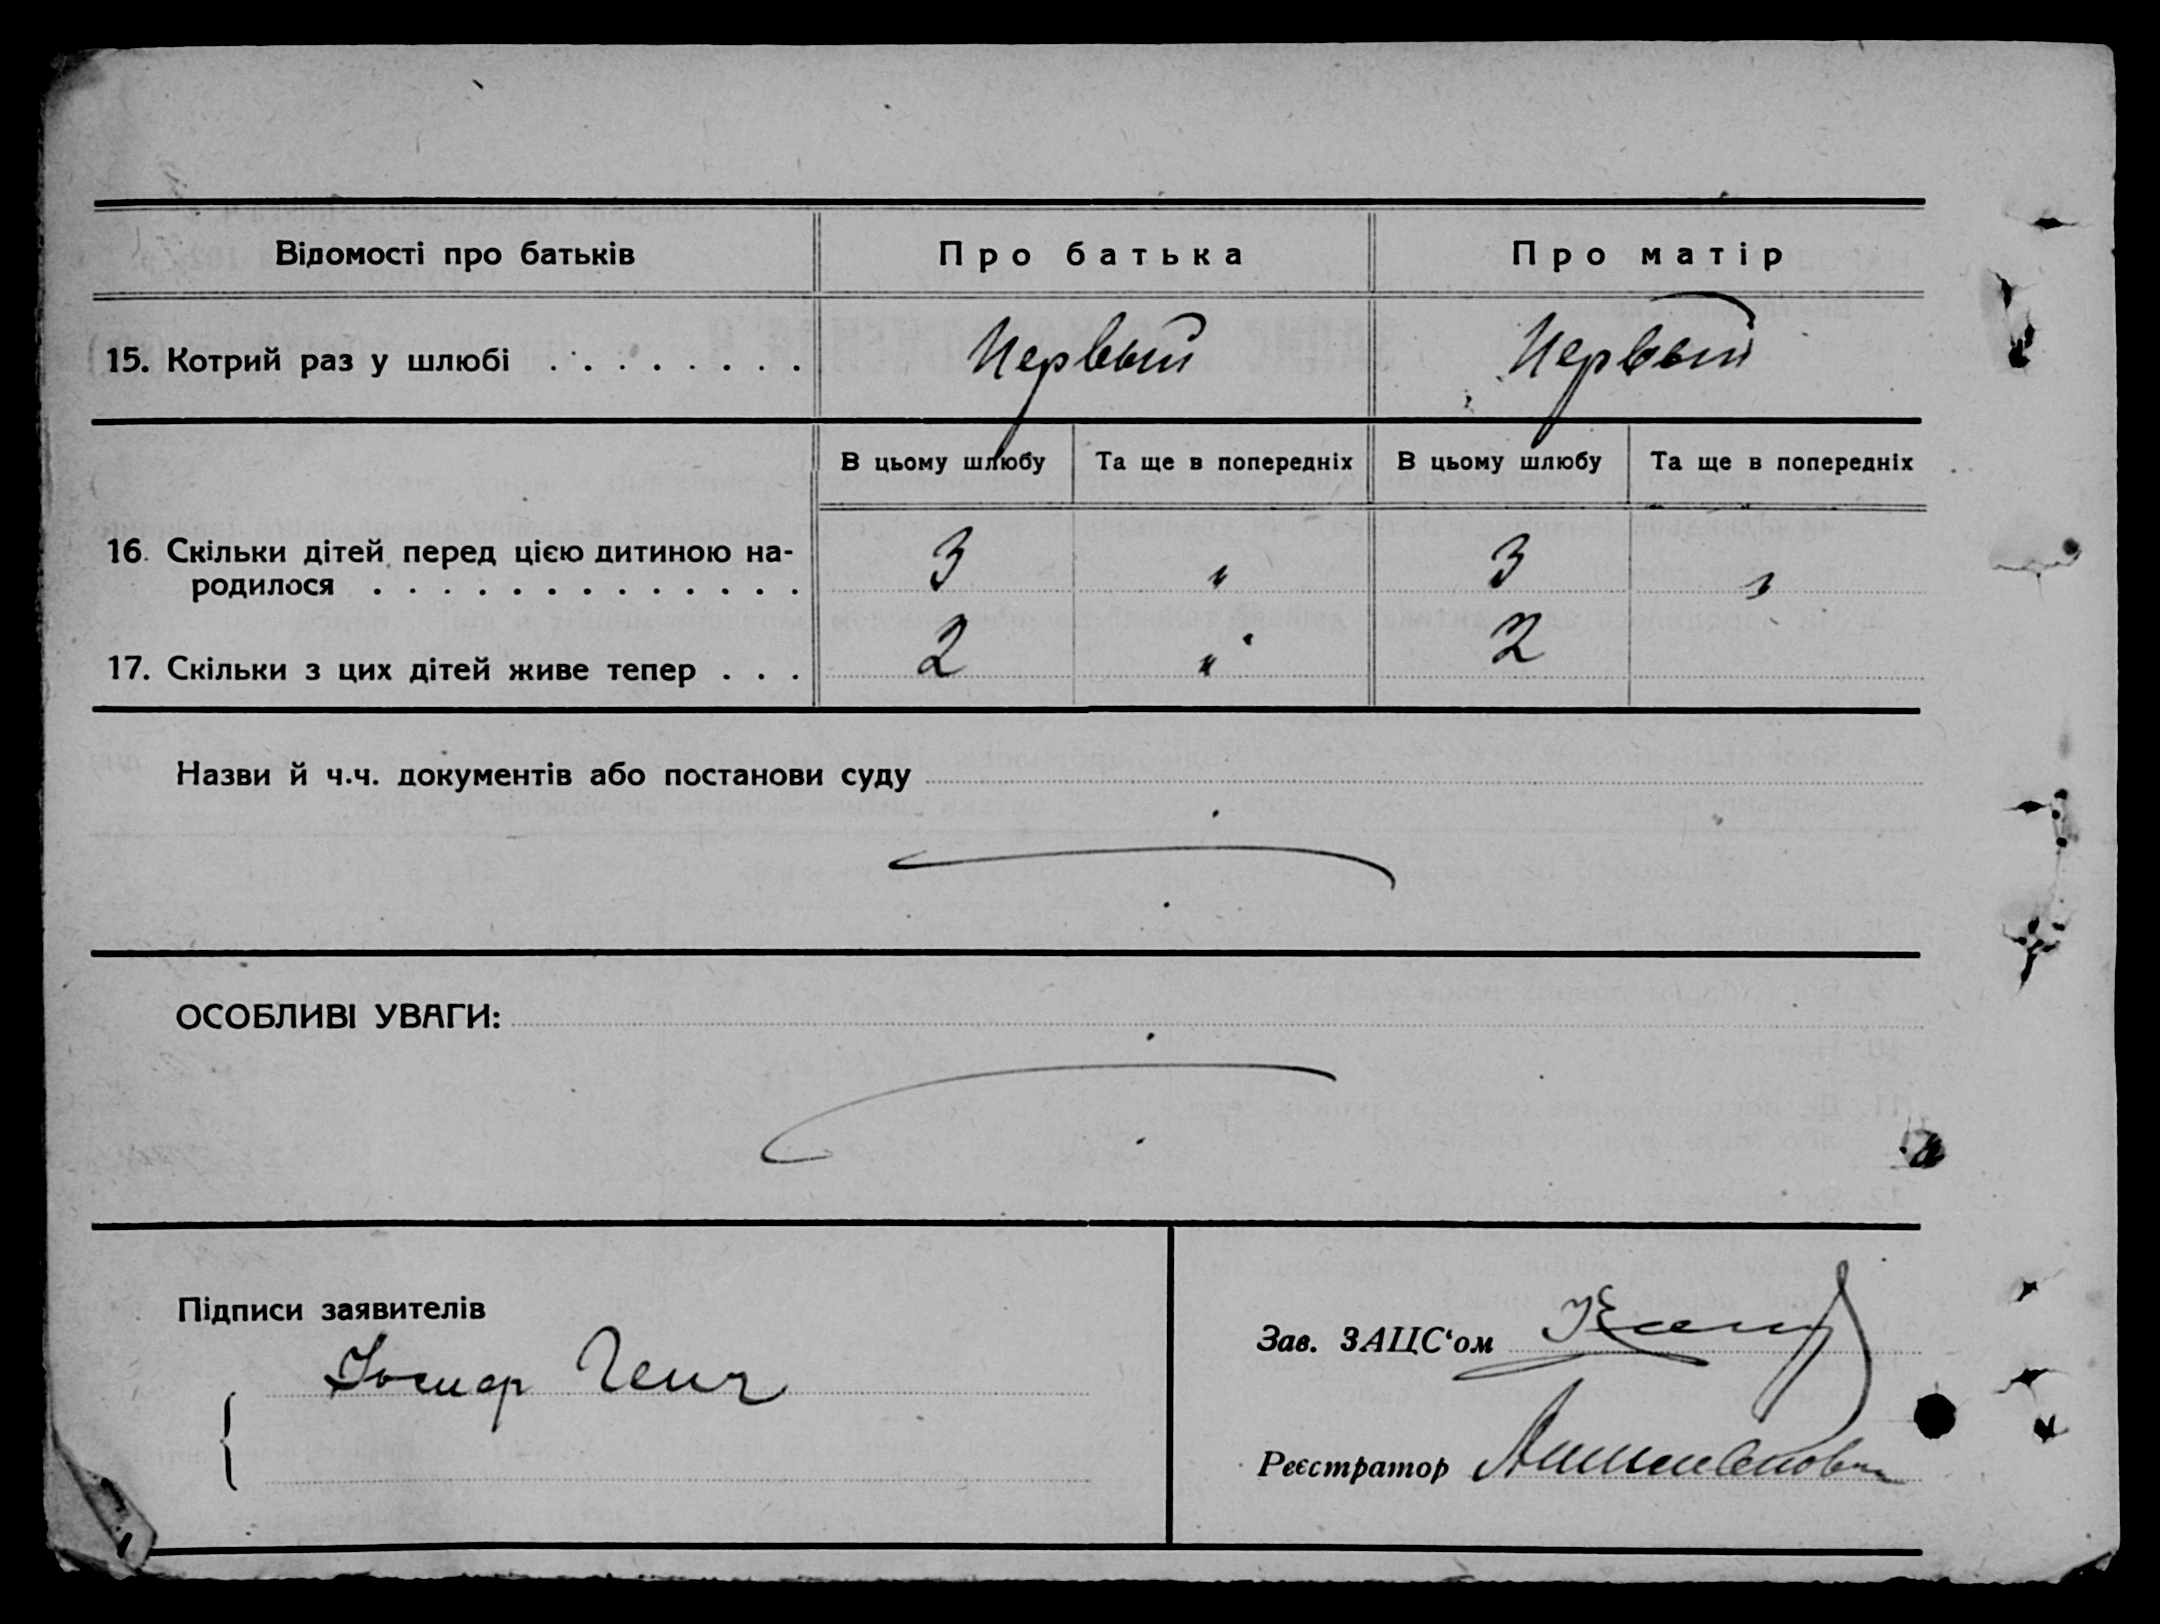 Відомості про батьків Про батька Про матір
15. Котрий раз у шлюбі . . . . . . . . Первый Первый
В цьому шлюбу Та ще в попередніх В цьому шлюбу Та ще в попередніх
16. Скільки дітей перед цією дитиною на-
родилося . . . . . . . . . . . . . 3 " 3 "
17. Скільки з цих дітей живе тепер . . . 2 " 2
Назви й ч.ч. документів або постанови суду
ОСОБЛИВІ УВАГИ:
Підписи заявителів
Зав. ЗАЦС‘ом
Реєстратор